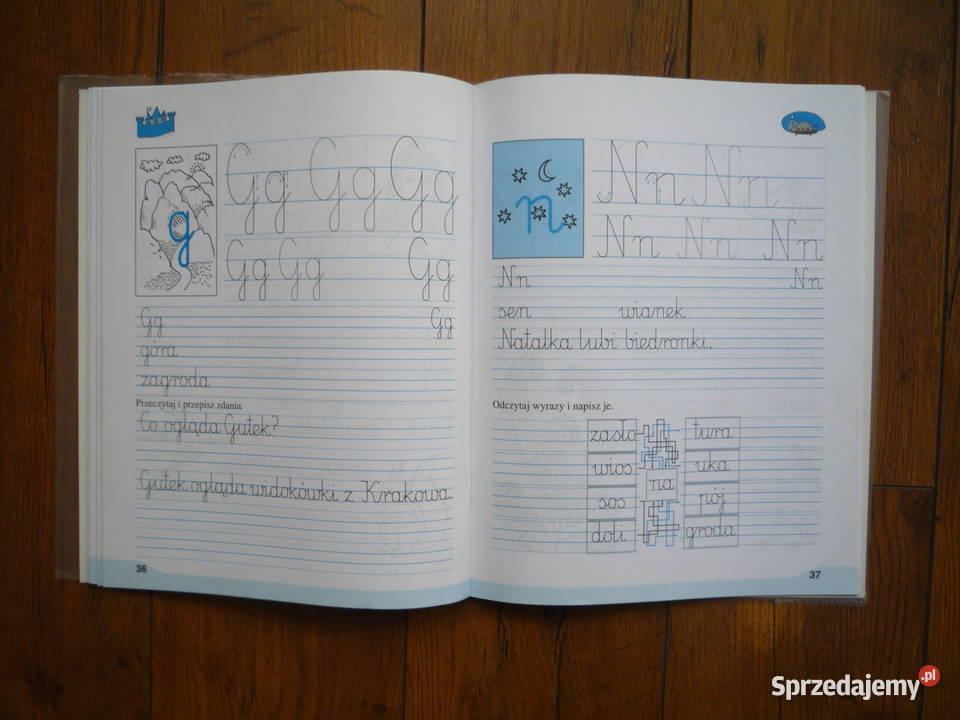 g
Gg Gg Gg
Gg Gg Gg
Gg Gg
góra
zagroda
Przeczytaj i przepisz zdania.
Co ogląda Gutek?
Gutek ogląda widokówki z Krakowa.
36
n
Nn Nn
Nn Nn Nn
Nn Nn
sen wianek
Natalka lubi biedronki.
Odczytaj wyrazy i napisz je.
zasło tura
wios uka
na
sos pój
doli groda
37
Sprzedajemy.pl